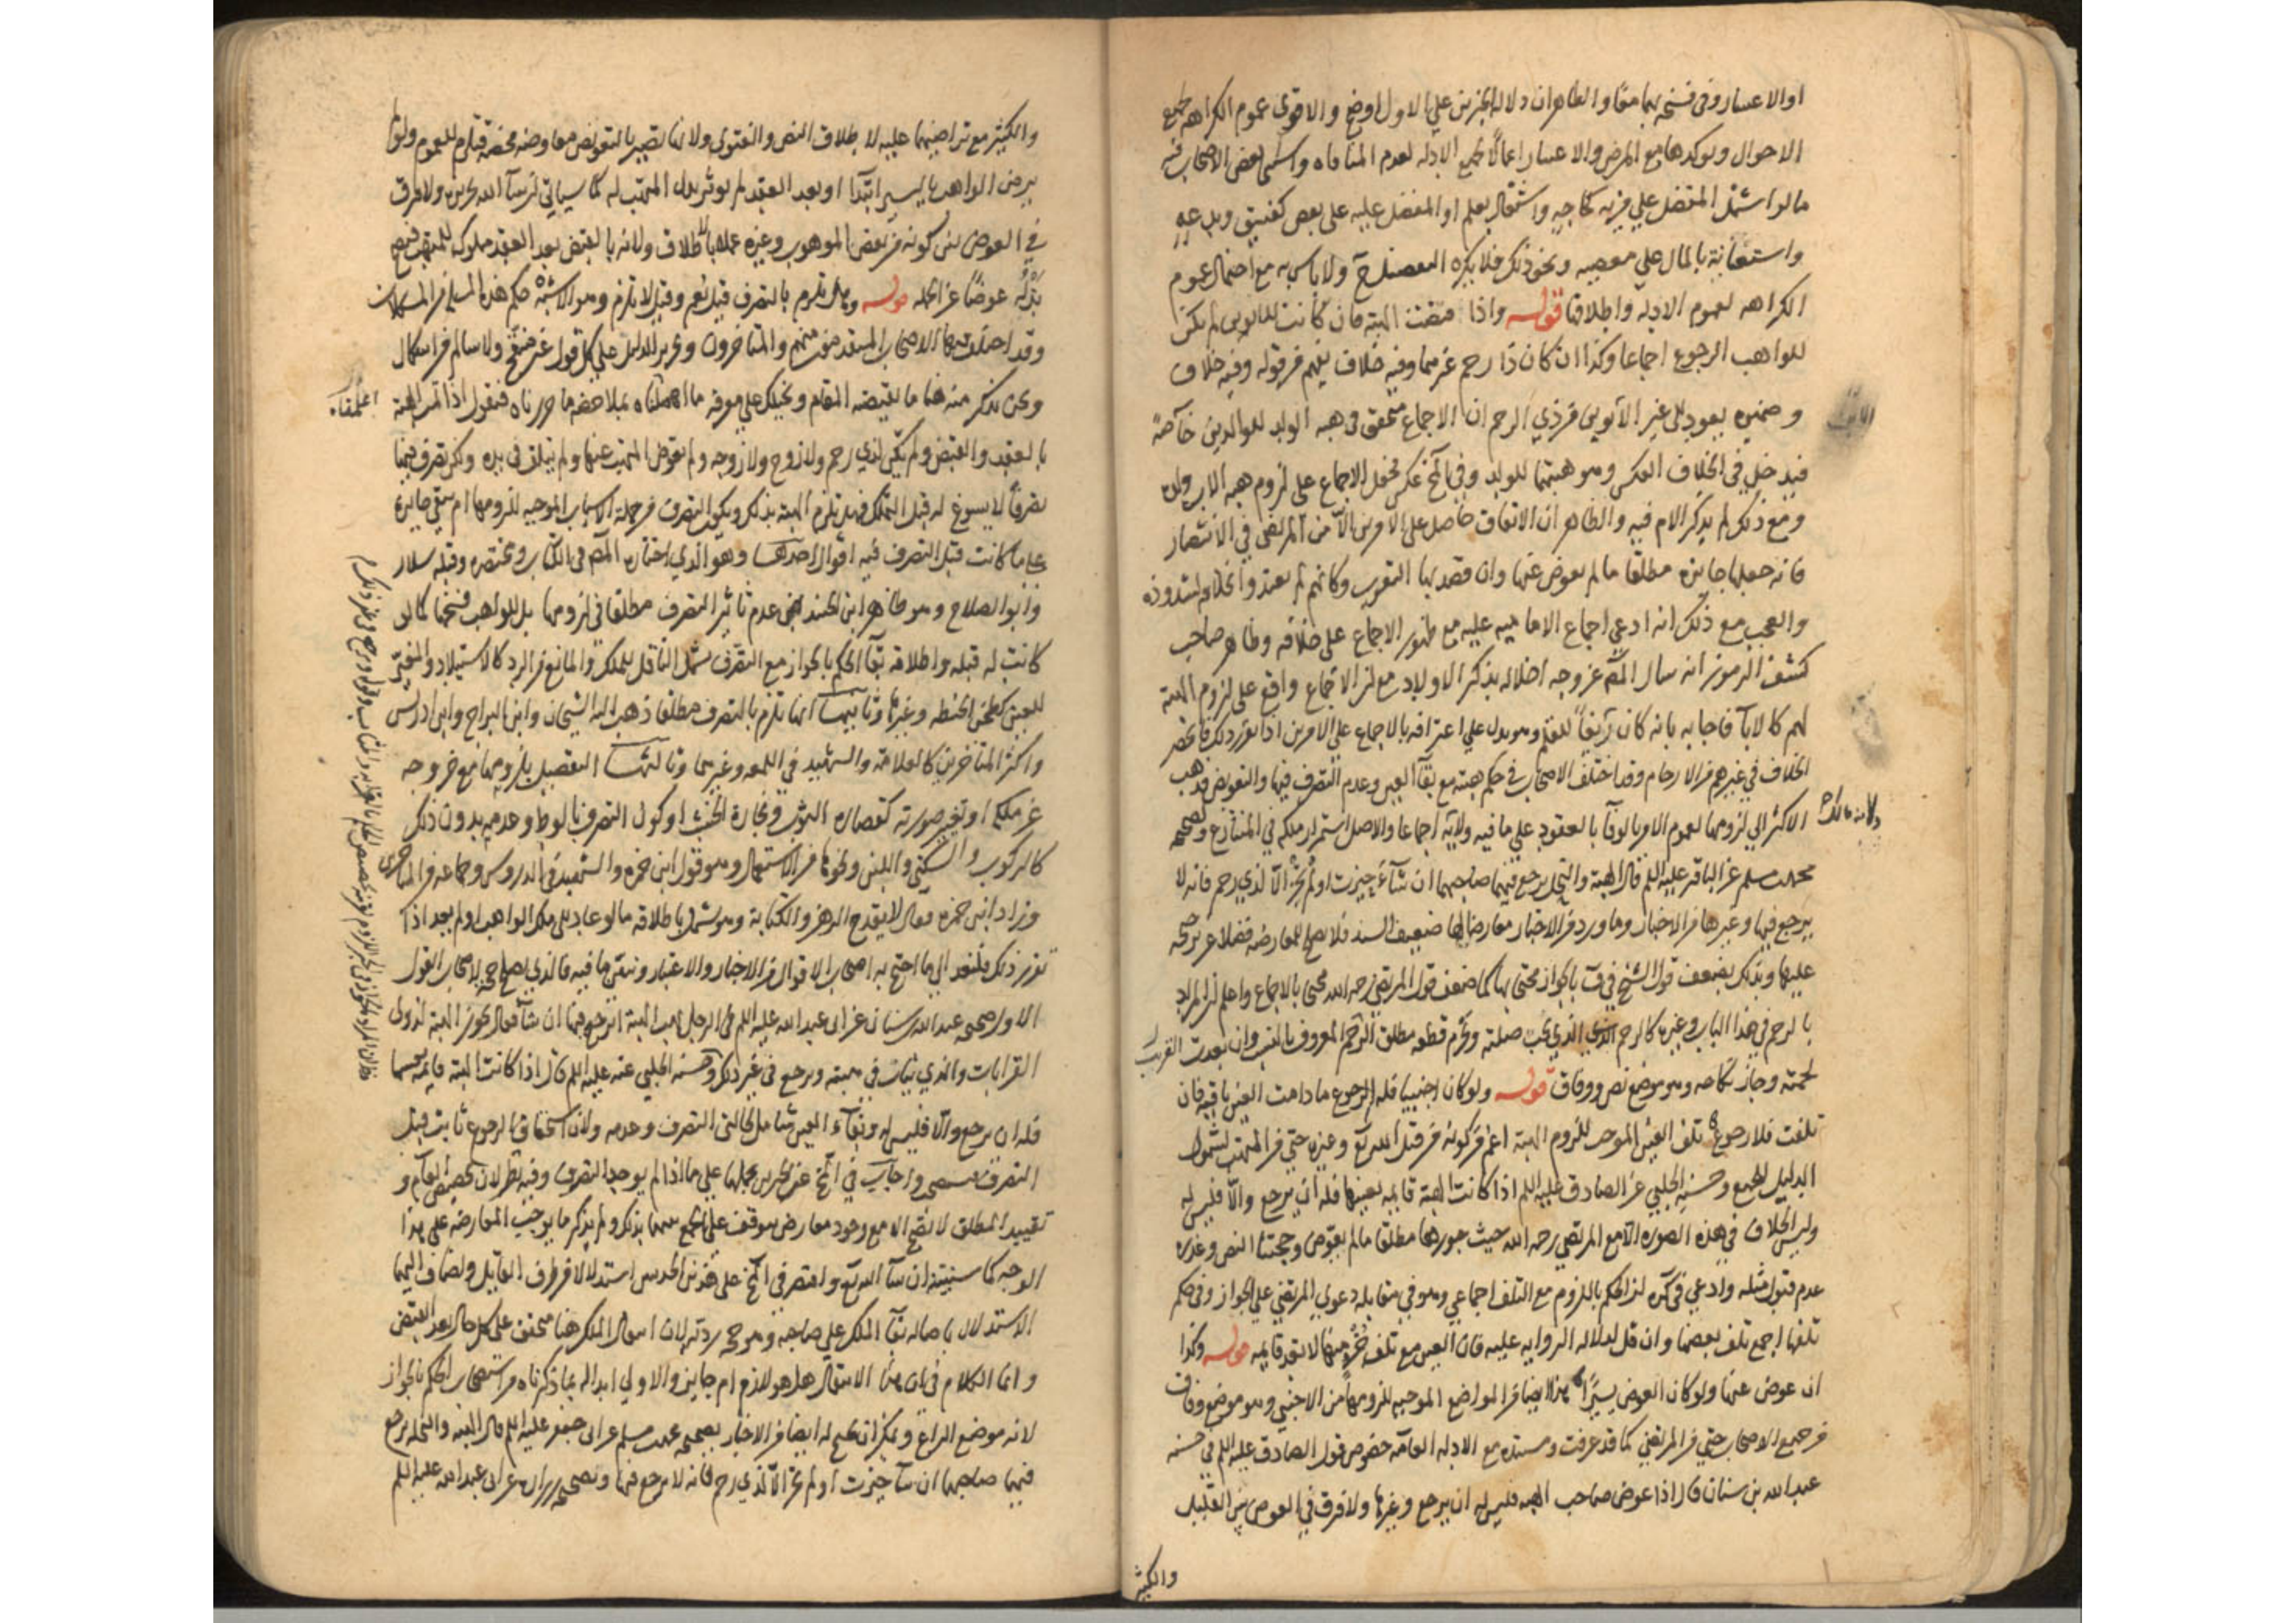 او الاعسار وفى فسخه بهما معًا والظاهر ان دلالة الخبرين على الاول اوضح والاقوى عموم الكراهه لجميع
الاحوال وتوكدها مع المرض والاعسار اعمالًا لجميع الادله لعدم المنافاه واستثنى بعض الاصحاب منه
ما لو اشتمل المفضل على مزيه كحاجه واشتغال بعلم او المفضل عليه على نقص كفسق وبدعه
واستعانة بالمال على معصيه ونحو ذلك فلا يكره التفضيل ح ولا باس به مع احتمال عموم
الكراهه لعموم الادله واطلاقها قوله واذا قبضت الهبه فان كانت للابوين لم يكن
للواهب الرجوع اجماعا وكذا ان كان ذا رحم غيرهما وفيه خلاف يفهم من قوله وفيه خلاف
وضميره يعود الى غير الابوين من ذي الرحم ان الاجماع متحقق فى هبه الولد للوالدين خاصةً
فيدخل في الخلاف العكس وهو هبتهما للولد وفي المخ عكس فنقل الاجماع على لزوم هبه الاب ولده
ومع ذلك لم يذكر الام فيه والظاهر ان الاتفاق حاصل على الامرين الّا من المرتضى في الانتصار
فانه جعلها جايزه مطلقا ما لم يعوض عنها وان قصد بها التقرب وكانهم لم يعتدوا بخلافه لشذوذه
والعجب مع ذلك انه ادعى اجماع الاماميه عليه مع ظهور الاجماع على خلافه وظاهر صاحب
كشف الرموز انه سال المص عن وجه اخلاله بذكر الاولاد مع ان الاجماع واقع على لزوم الهبة
لهم كالاباء فاجابه بانه كان زيغًا للقلم وهو يدل على اعترافه بالاجماع على الامرين اذا تقرر ذلك فانحصر
الخلاف في غيرهم من الارحام وقد اختلف الاصحاب في حكم هبته مع بقاء العين وعدم التصرف فيها والتعويض فذهب
الاكثر الى لزومها لعموم الامر بالوفا بالعقود على ما فيه ولانه اجماعا والاصل استمرار ملكه في المتنازع ولصحيحه
محمد بن مسلم عن الباقر عليه السلم قال الهبة والنحل يرجع فيهما صاحبهما ان شاء حيزت او لم تحز الّا لذي رحم فانه لا
يرجع فيها وغيرها من الاخبار وما ورد من الاخبار معارضا لها ضعيف السند فلا يصلح للمعارضه فضلا عن ترجحه
عليها وبذلك يضعف قول الشيخ في ف بالجواز محتجا بها كما ضعف قول المرتضى رحمه الله محتجا بالاجماع واعلم ان المراد
بالرحم في هذا الباب وغيره كالرحم الذي يجب صلته ويحرم قطعه مطلق الرحم المعروف بالنسب وان بعدت
لحمته وجاز نكاحه وهو موضع نص ووفاق قوله ولو كان اجنبيا فله الرجوع ما دامت العين باقيه فان
تلفت فلا رجوع تلف العين الموجب للزوم الهبة اعم من كونه من قبل الله تع وغيره حتى من المتهب لشمول
الدليل للجميع وحسنه الحلبي عن الصادق عليه السلم اذا كانت الهبة قايمه بعينها فله ان يرجع والّا فليس له
وليس الخلاف في هذه الصوره الا مع المرتضى رحمه الله حيث جوزها مطلقا ما لم يعوّض وحجتنا النص وعذره
عدم قبول مثله وادعى في كره ان الحكم باللزوم مع التلف اجماعي وهو في مقابله دعوى المرتضى على الجواز وفى حكم
تلفها اجمع تلف بعضها وان قل لدلاله الروايه عليه فان العين مع تلف جزء منها لا تعد قايمه قوله وكذا
ان عوض عنها ولو كان العوض يسيرًا هذا ايضا من المواضع الموجبه للزومها من الاجنبي وهو موضع وفاق
من جميع الاصحاب حتى من المرتضى كما قد عرفت ومستنده مع الادله العامه خصوص قول الصادق عليه السلم في حسنه
عبد الله بن سنان قال اذا عوض صاحب الهبه فليس له ان يرجع وغيرها ولا فرق في العوض بين القليل
والكثير
والكثير مع تراضيهما عليه لاطلاق النص والفتوى ولانها تصير بالتعويض معاوضه محضه فتلزم للعموم ولو لم
يرض الواهب باليسير ابتدا او بعد العقد لم يوثر بذل المتهب له كما سياتى ان شا الله تحريره ولا فرق
في العوض بين كونه من بعض الموهوب وغيره عملا بالاطلاق ولانه بالقبض بعد العقد مملوك للمتهب فيصح
بذله عوضًا عن الجمله قوله وهل تلزم بالتصرف قيل نعم وقيل لا تلزم وهو الاشبه حكم هذه المسله من المشكلات
وقد اختلف فيها الاصحاب المتقدمون منهم والمتاخرون وتحرير الدليل على كل قول غير منقح ولا سالم من اشكال
ونحن نذكر منه هنا ما يقتضيه المقام ونحيلك على معرفه ما اهملناه بملاحظه ما حررناه فنقول اذا تمت الهبة
بالعقد والقبض ولم تكن لذي رحم ولا زوج ولا زوجه ولم يعوض المتهب عنها ولم تتلف في يده ولكن تصرف فيها
تصرفاً لا يسوغ له قبل التملك فهل تلزم الهبة بذلك ويكون التصرف من جمله الاسباب الموجبه للزومها ام تبقى جايزه
على ما كانت قبل التصرف فيه اقوال احدها وهو الذي اختاره المص فى الكتاب ومختصره وقبله سلار
وابو الصلاح وهو ظاهر ابن الجنيد اعنى عدم تاثير التصرف مطلقا في لزومها بل للواهب فسخها كما لو
كانت له قبله واطلاقه بقاء الحكم بالجواز مع التصرف يشمل الناقل للملك والمانع من الرد كالاستيلاد والمغيّر
للعين كطحن الحنطه وغيرها وثانيها انها تلزم بالتصرف مطلقا ذهب اليه الشيخان وابن البراج وابن ادريس
واكثر المتاخرين كالعلامة والشهيد في اللمعه وغيرها وثالثها التفصيل بلزومها مع خروجه
عن ملكه او تغير صورته كقصاره الثوب ونجارة الخشب او كون التصرف بالوط وعدمه بدون ذلك
كالركوب والسكنى واللبس ونحوها من الاستعمال وهو قول ابن حمزه والشهيد في الدروس وجماعه من المتاخرين
وزاد ابن حمزه فقال لا يقدح الرهن والكتابة وهو يشمل باطلاقه ما لو عاد الى ملك الواهب او لم يعد اذا
تقرر ذلك فلنعد الى ما احتج به اصحاب الاقوال من الاخبار والاعتبار ونبين ما فيه فالذي يصلح حجه لاصحاب القول
الاول صحيحه عبد الله بن سنان عن ابى عبد الله عليه السلم فى الرجل يهب الهبة ايرجع فيها ان شاء فقال تجوز الهبة لذوى
القرابات والذي يثاب في هبته ويرجع في غير ذلك وحسنه الحلبي عنه عليه السلم قال اذا كانت الهبة قايمه بعينها
فله ان يرجع والّا فليس له وبقاء العين شامل لحالتى التصرف وعدمه ولان استحقاق الرجوع ثابت قبل
التصرف فيستصحب واجاب في المخ عن الخبرين بحملهما على ما اذا لم يوجد التصرف وفيه نظر لان تخصيص العام و
تقييد المطلق لا يصح الا مع وجود معارض يتوقف على الجمع بينهما بذلك ولم يذكر ما يوجب المعارضه على هذا
الوجه كما سنبينه ان شا الله تع واقتصر في المخ على هذين الحديثين استدلالا من طرف القايل ويضاف اليهما
الاستدلال باصاله بقاء الملك على صاحبه وموجه ردّه لان انتقال الملك هنا متحقق على كل حال بعد القبض
وانما الكلام فى ان هذا الانتقال هل هو لازم ام جايز والاولى ابداله بما ذكرناه من استصحاب الحكم بالجواز
لانه موضع النزاع ويمكن ان يحتج له ايضا من الاخبار بصحيحه محمد بن مسلم عن ابى جعفر عليه السلم قال الهبه والنحله يرجع
فيهما صاحبهما ان شا حيزت او لم تحز الّا لذي رحم فانه لا يرجع فيها وبصحيحه زراره عن ابى عبد الله عليه السلم